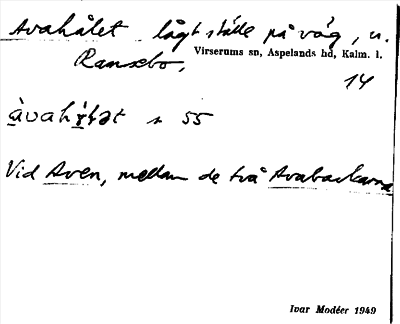 Avahålet lågt ställe på väg, u.
Ramsebo, Virserums sn, Aspelands hd, Kalm. l.
14
s 55
Vid Aven, mellan de två Avabackarna
Ivar Modéer 1949